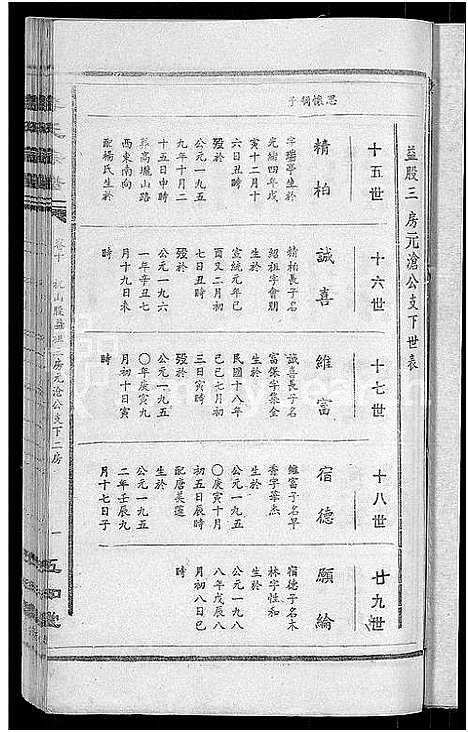 益股三房元滄公支下世表
思懷嗣子
十五世
精柏
字瑞亭生於
光緒四年戊
寅十二月十
六日丑時
歿於
公元一九五
九年十月二
十五日申時
葬高壠山路
西東南向
配楊氏生於
十六世
誠喜
精柏長子名
紹祖字會朋
生於
宣統元年己
酉又二月初
七日丑時
歿於
公元一九六
一年辛丑七
月十九日未
時
十七世
維富
誠喜長子名
富保字集金
生於
民國十八年
己巳七月初
三日寅時
歿於
公元一九五
〇年庚寅九
月初十日寅
時
十八世
宿德
維富子名早
秀字華杰
生於
公元一九五
〇庚寅十月
初五日辰時
配唐美蓮
生於
公元一九五
二年壬辰九
月十七日子
廿九世
願綸
宿德子名未
林字性和
生於
公元一九八
八年戊辰八
月初八日巳
時
卷十
股益組三房元滄公支下二房
一